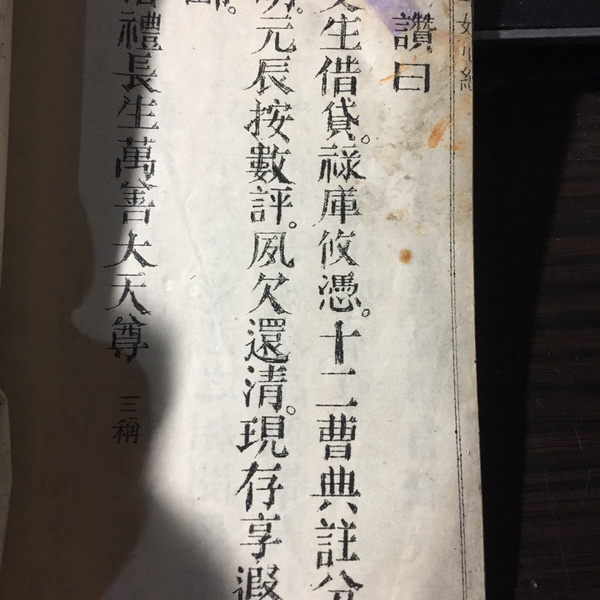 讚曰
生借貸。祿庫攸憑。十二曹典註分
。元辰按數評。夙欠還清。現存享遐
禮長生萬善大天尊 三稱